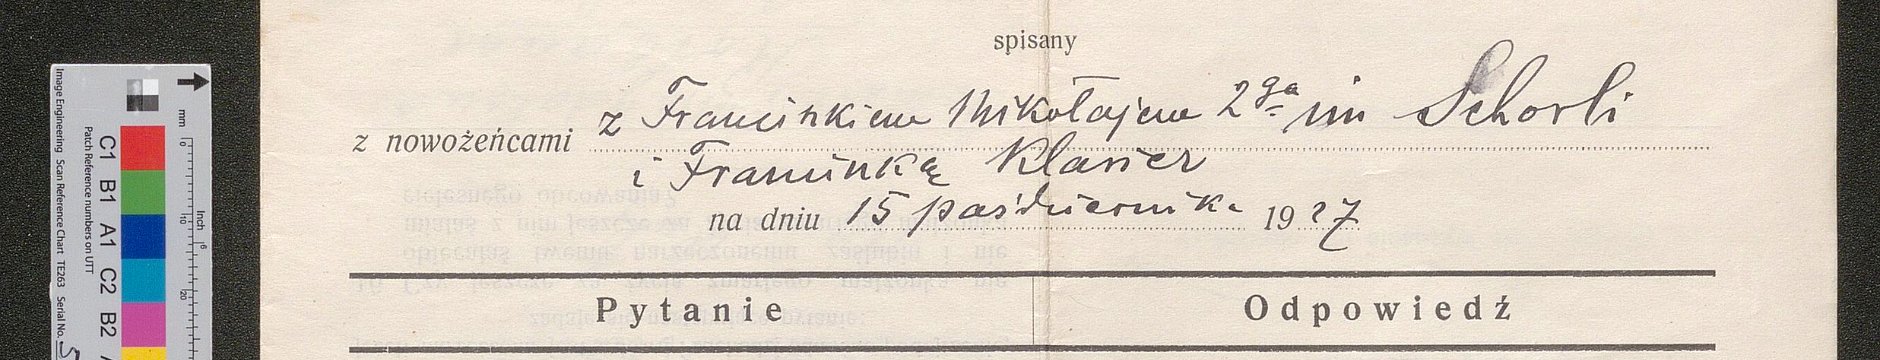 spisany
z nowożeńcami z Franciszkiem Mikołajem 2ga im Schorli
i Franciszką Klasier
na dniu 15 października 1927
Pytanie Odpowiedź
Image Engineering Scan Reference Chart TE263 Serial No.
Patch Reference numbers on UTT
C1 B1 A1 C2 B2
mm 0 10 20
Inch